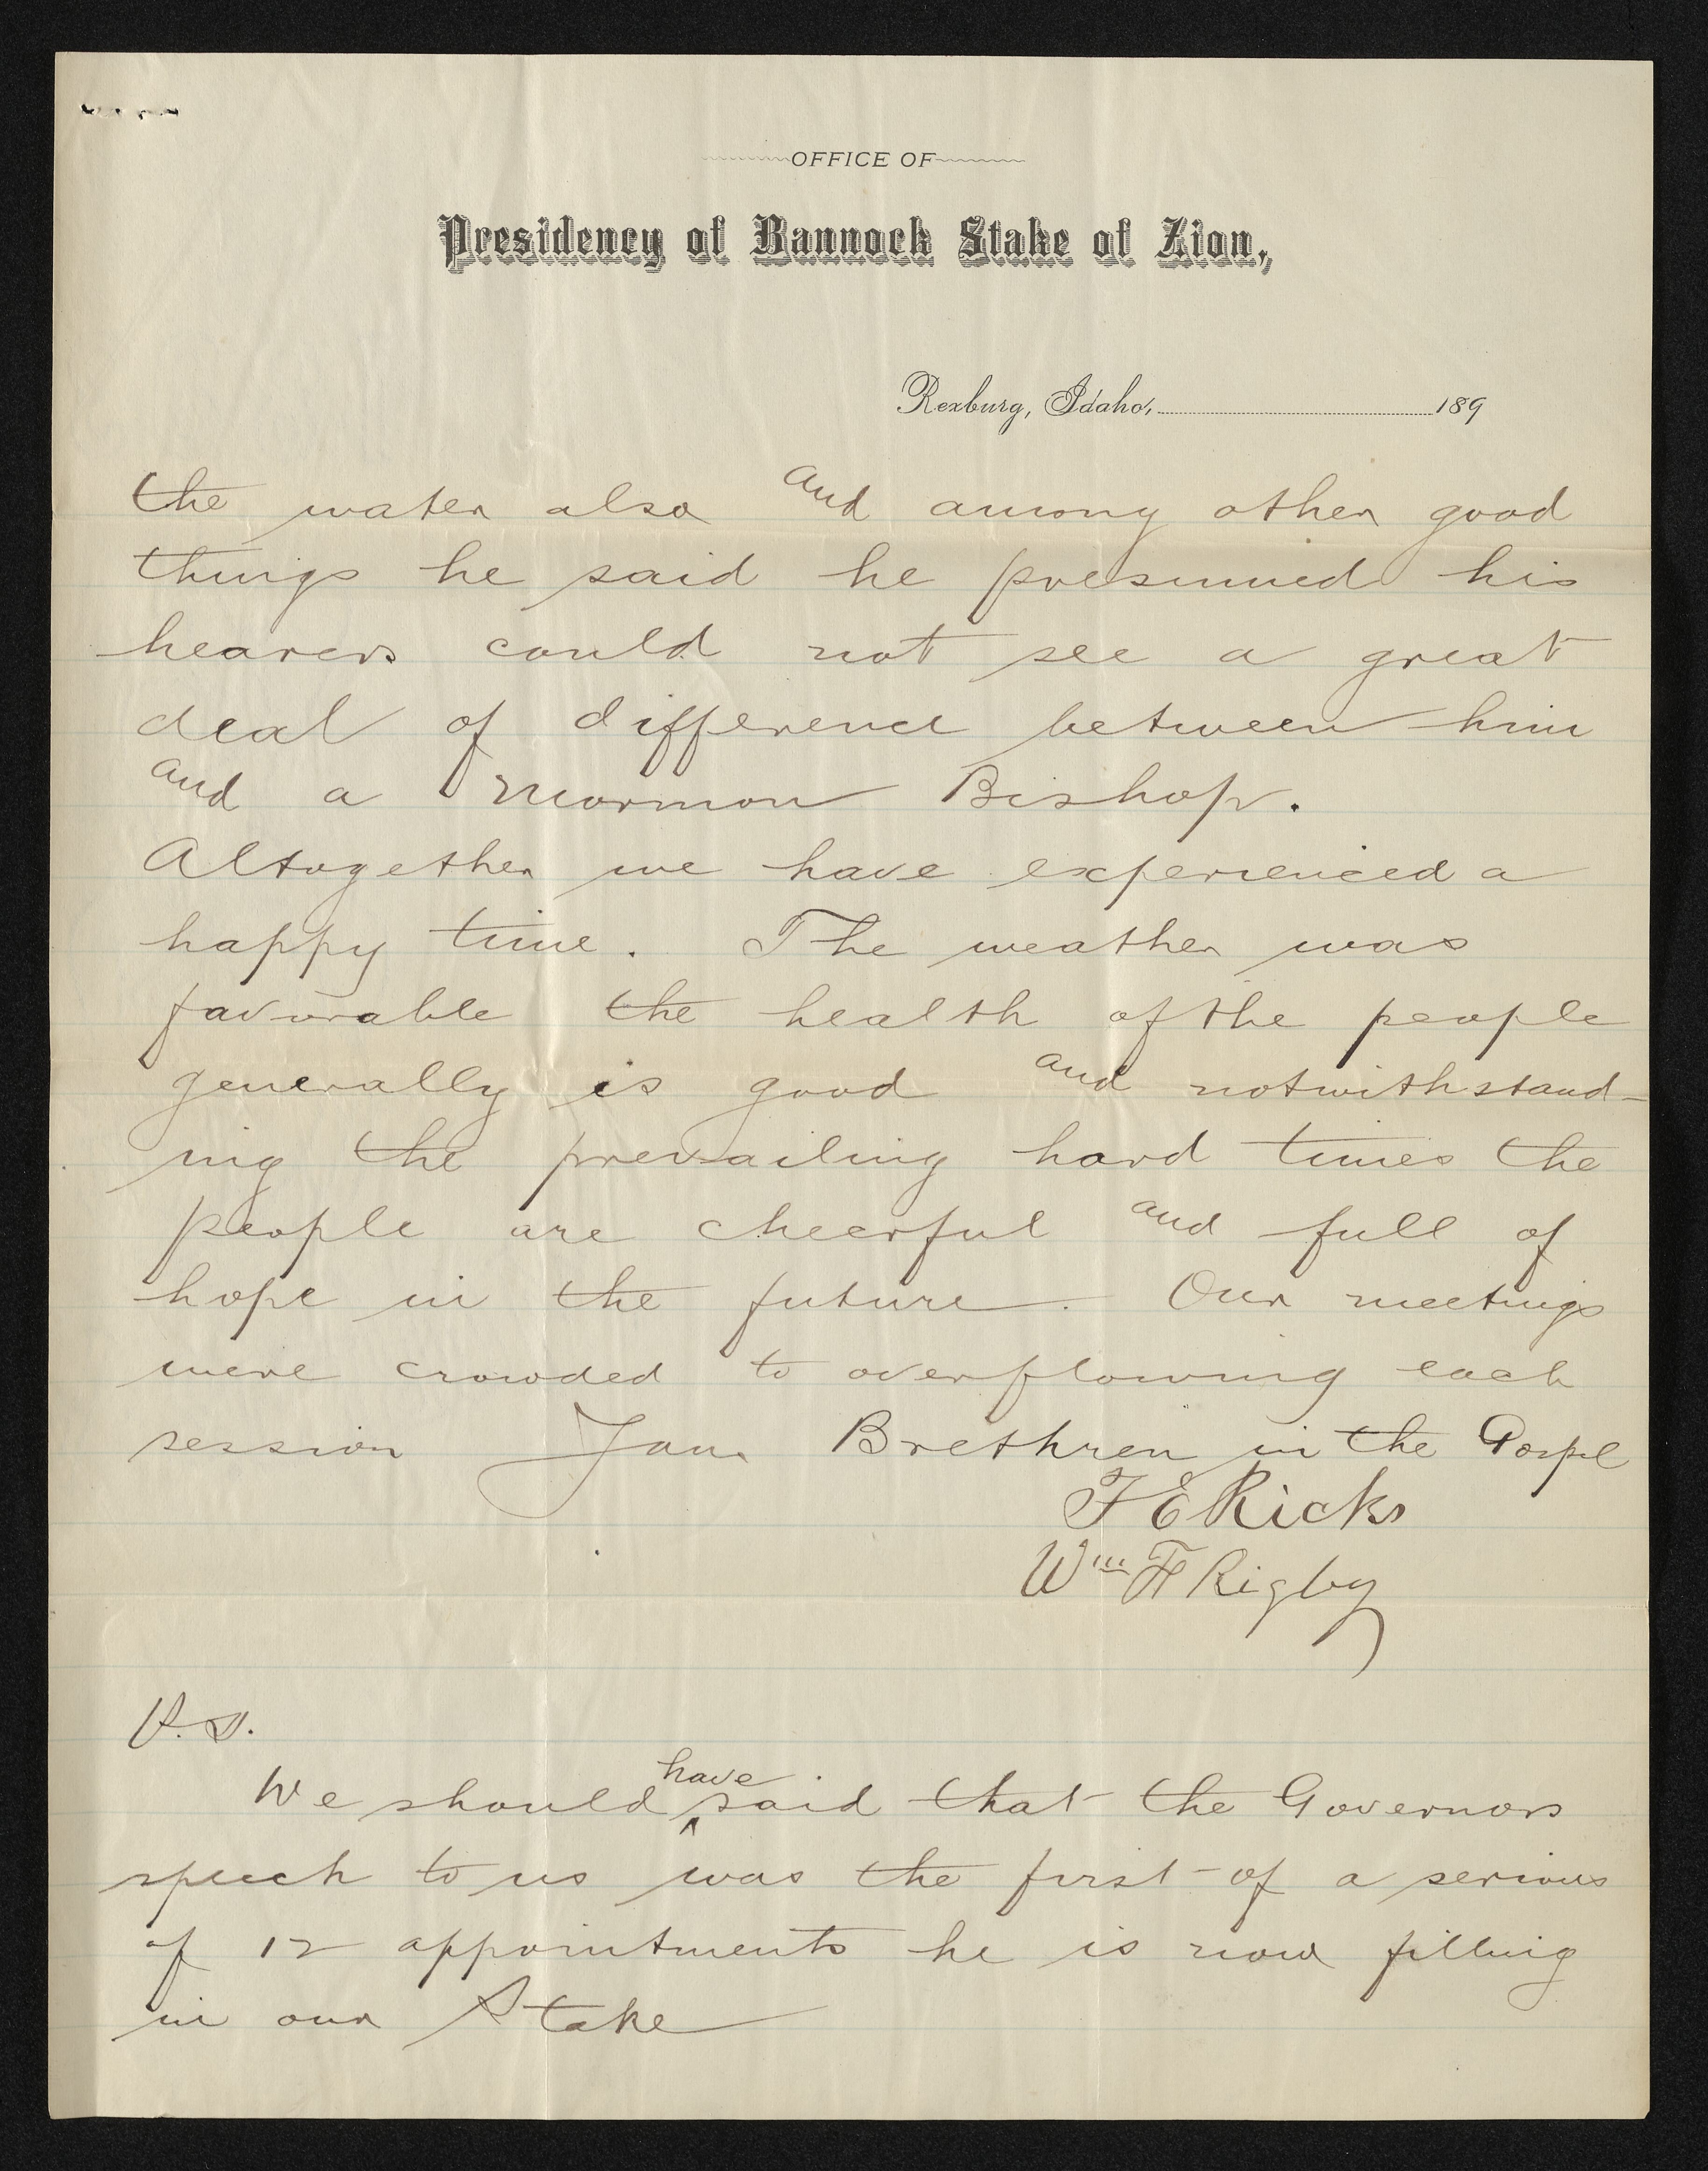 OFFICE OF
Presidency of Bannock Stake of Zion,
Rexburg, Idaho, 189
the water also and among other good
things he said he presumed his
hearers could not see a great
deal of difference between him
and a Mormon Bishop.
Altogether we have experienced a
happy time. The weather was
favorable the health of the people
generally is good and notwithstand-
ing the prevailing hard times the
people are cheerful and full of
hope in the future. Our meetings
were crowded to overflowing each
session Your Brethren in the Gospel
T E Ricks
Wm F Rigby
P.S.
have
We should ^ said that the Governors
speech to us was the first of a serious
of 12 appointments he is now filling
in our Stake